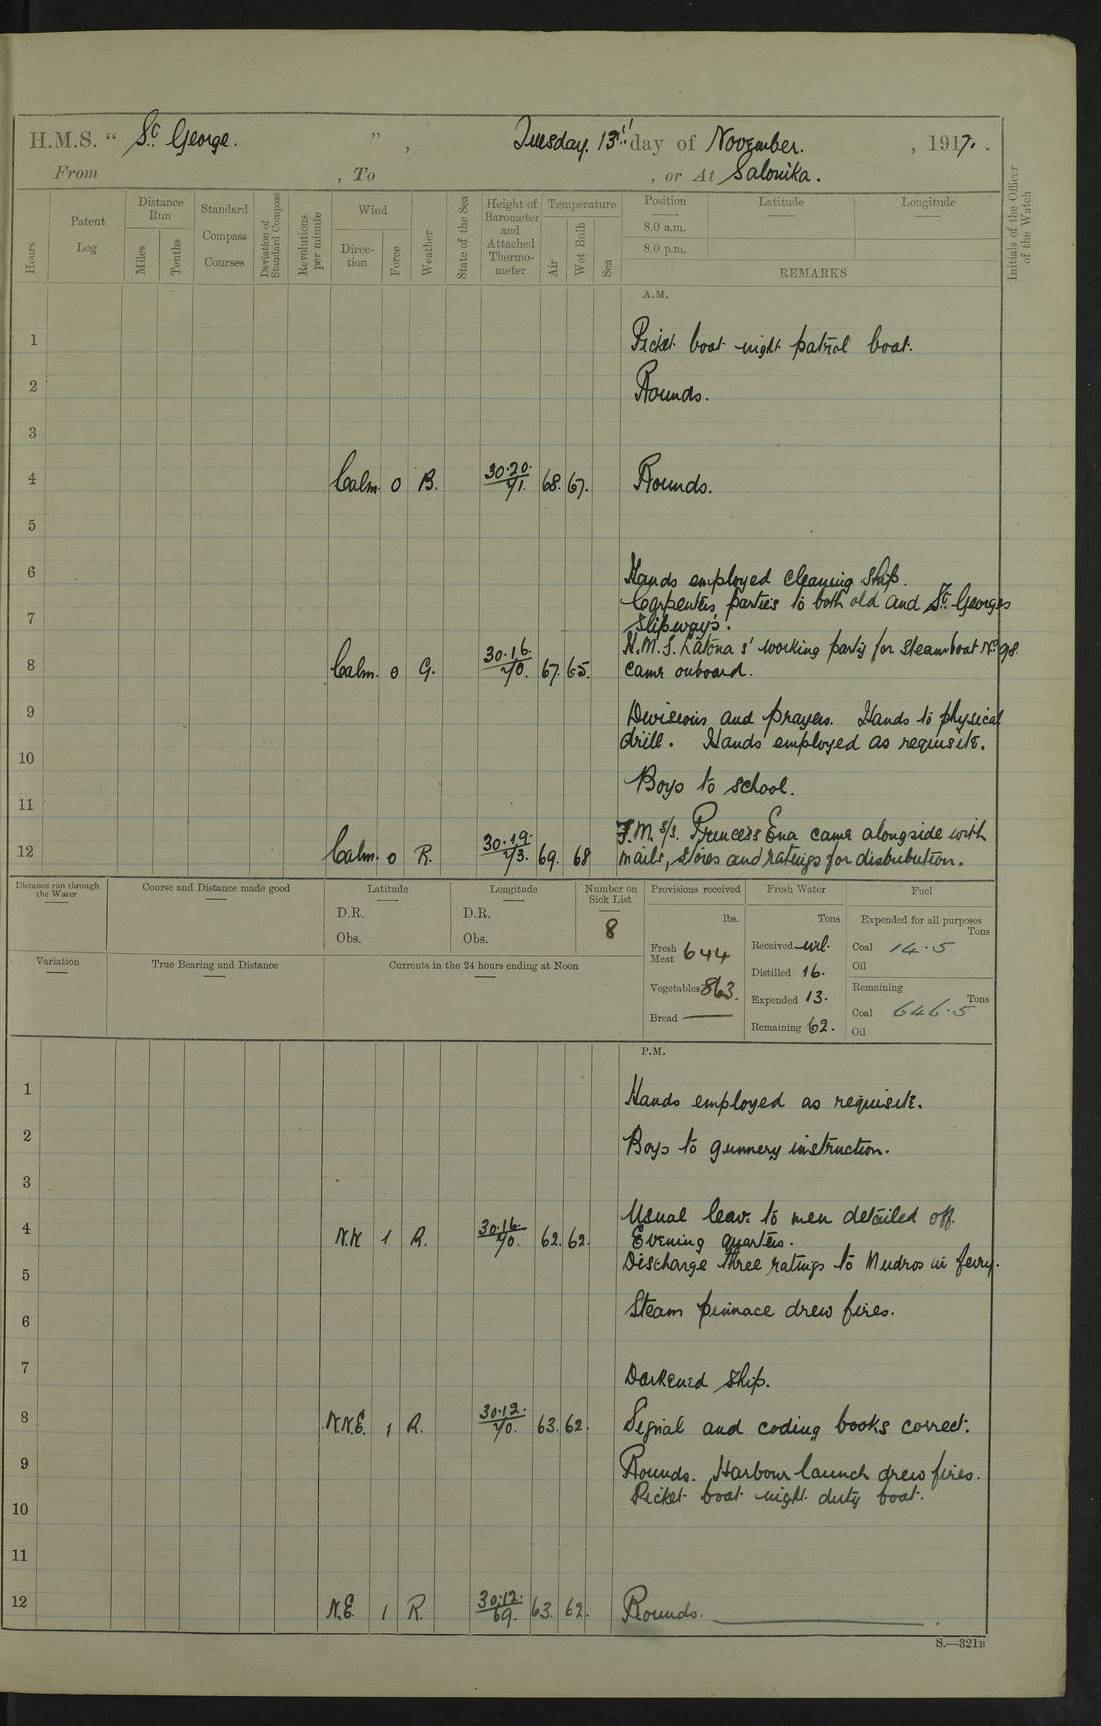 H.M.S. " St. George. ", Tuesday. 13th day of November. , 1917. .
From , To , or At Salonika.
Hours
Patent Log
Distance Run
Miles
Tenths
Standard Compass Courses
Deviation of Standard Compass
Revolutions per minute
Wind
Direction
Force
Weather
State of the Sea
Height of Barometer and Attached Thermometer
Temperature
Air
Wet Bulb
Sea
Position Latitude Longitude
8.0 a.m.
8.0 p.m.
REMARKS
Initials of the Officer of the Watch
A.M.
1 Picket boat night patrol boat.
2 Rounds.
3
4 Calm. 0 B. 30.20. 71. 68. 67. Rounds.
5
6 Hands employed cleaning ship.
Carpenters parties to both old and St. Georges
7 slipways.
H.M.S. Latona s' working party for Steamboat No. 98.
8 Calm. 0 G. 30.16. 70. 67. 65. came onboard.
9 Divisions and prayers. Hands to physical
drill. Hands employed as requisite.
10 Boys to school.
11
F.M. s/s. Princess Ena came alongside with
12 Calm. 0 R. 30.19. 73. 69. 68 mails, stores and ratings for distribution.
Distance run through the Water
Course and Distance made good
Latitude
D.R.
Obs.
Longitude
D.R.
Obs.
Number on Sick List
8
Provisions received
lbs.
Fresh Meat 644
Vegetables 863.
Bread —
Fresh Water
Tons
Received nil.
Distilled 16.
Expended 13.
Remaining 62.
Fuel
Expended for all purposes
Tons
Coal 14.5
Oil
Remaining
Tons
Coal 646.5
Oil
Variation
True Bearing and Distance
Currents in the 24 hours ending at Noon
P.M.
1 Hands employed as requisite.
2 Boys to gunnery instruction.
3
Usual leave to men detailed off.
4 1 R. 30.16. 70. 62. 62. Evening quarters.
Discharge three ratings to Mudros in ferry.
5
Steam pinnace drew fires.
6
7 Darkened ship.
8 N.N.E. 1 R. 30.12. 70. 63. 62. Signal and coding books correct.
9 Rounds. Harbour launch drew fires.
Picket boat night duty boat.
10
11
12 N.E. 1 R. 30.12. 69. 63. 62. Rounds.
S.—321B